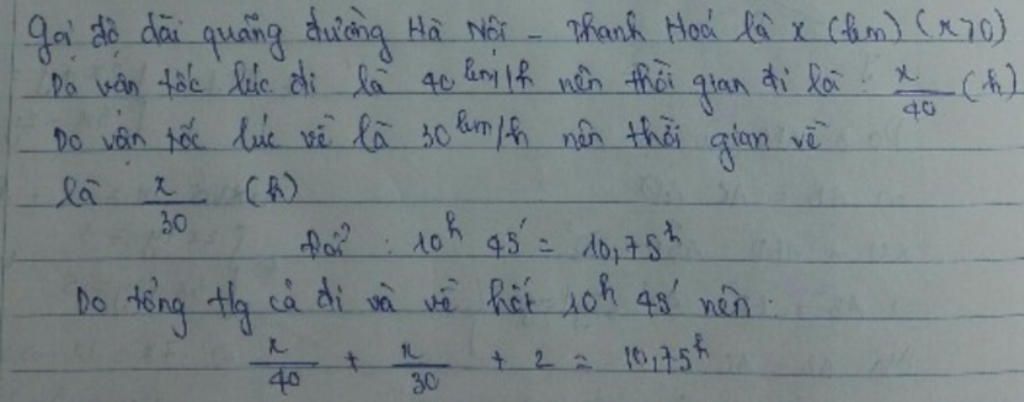 Gọi độ dài quãng đường Hà Nội - Thanh Hoá là x (km) (x>0)
Do vận tốc lúc đi là 40 km/h nên thời gian đi là : x/40 (h)
Do vận tốc lúc về là 30 km/h nên thời gian về
là x/30 (h)
Đổi : 10h 45' = 10,75h
Do tổng tg cả đi và về hết 10h 45' nên :
x/40 + x/30 + 2 = 10,75h